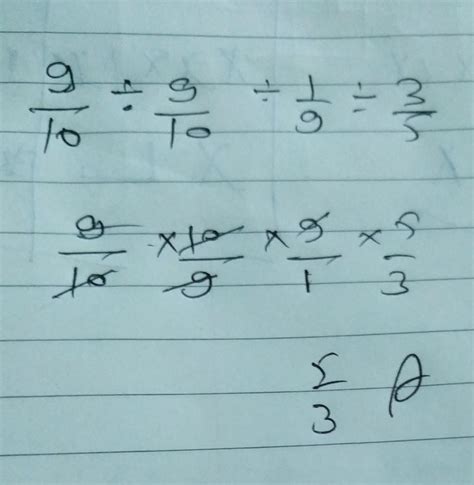 9/10 ÷ 9/10 ÷ 1/9 ÷ 3/5
9/10 × 10/9 × 9/1 × 5/3
5/3 A